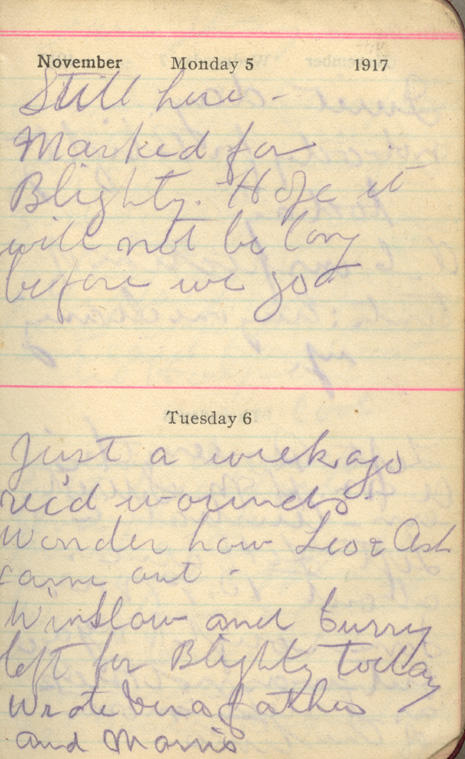 November Monday 5 1917
Still here -
Marked for
Blighty. Hope it
will not be long
before we go
Tuesday 6
Just a week ago
rec'd wounds.
Wonder how Leo & Ash
came out -
Winslow and Curry
left for Blighty today
Wrote Vera father
and Morris